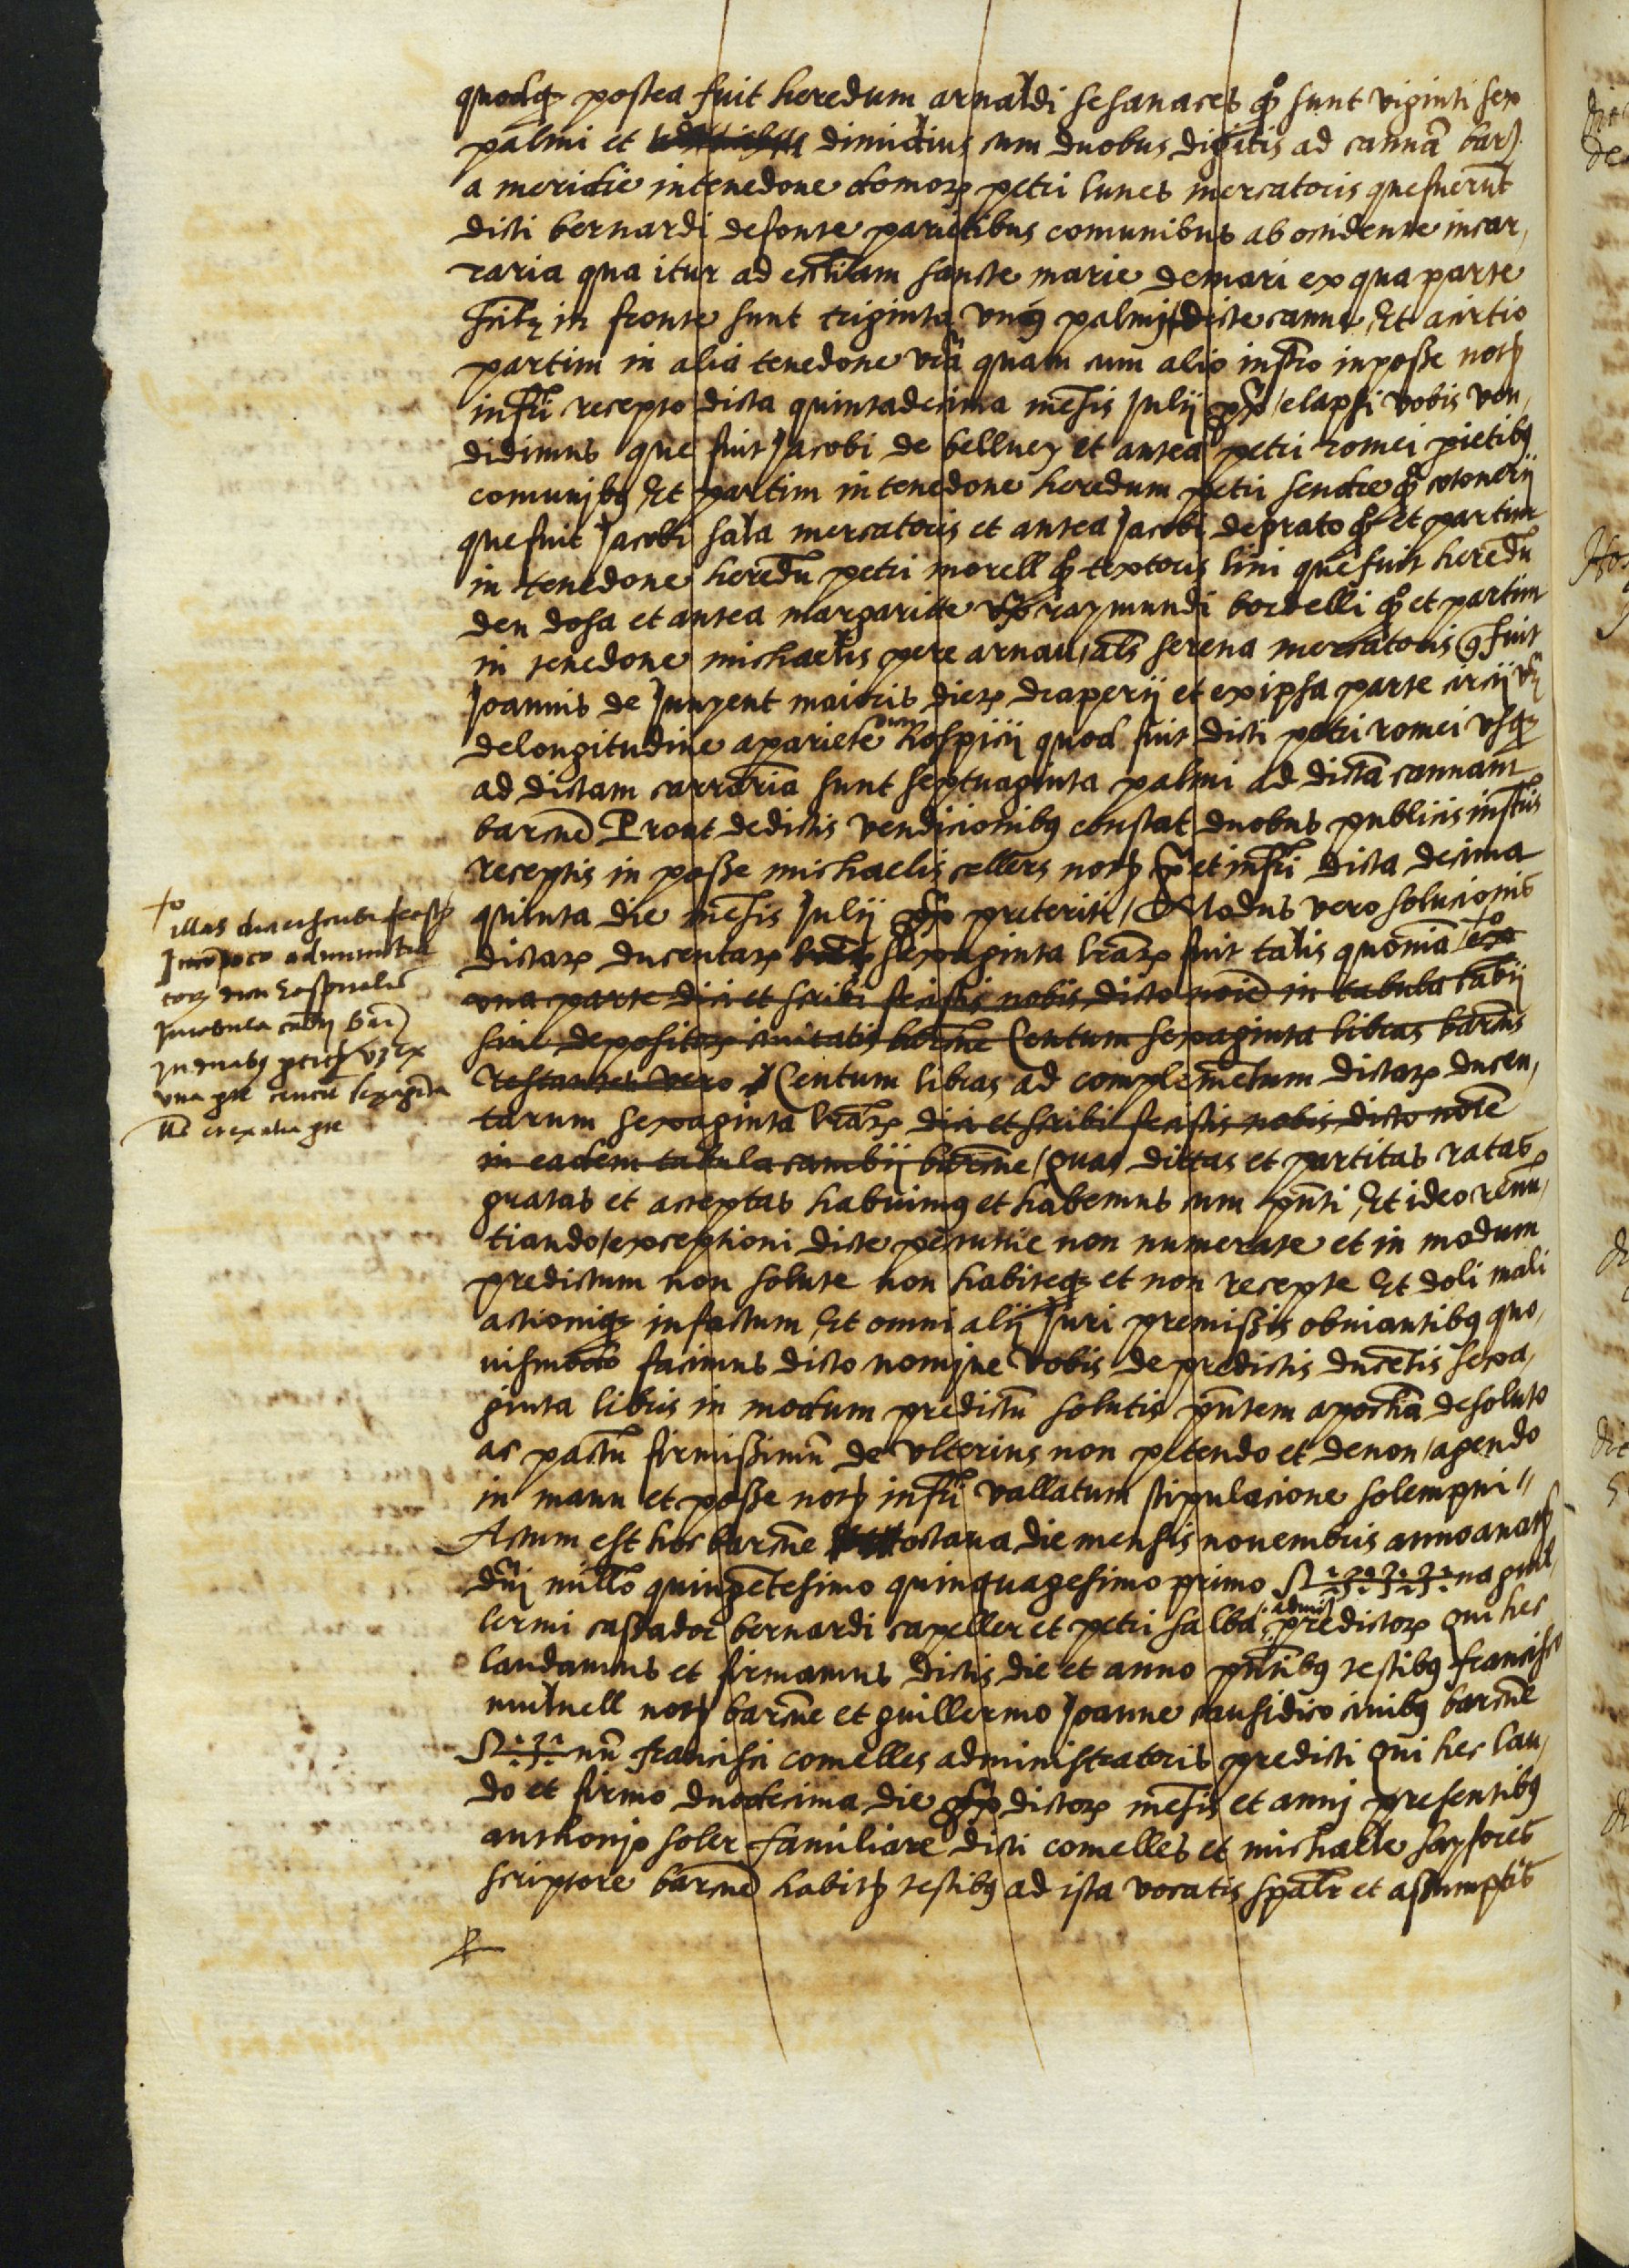 quodq postea fuit heredum arnaldi sesanaces qo sunt viginti sex
palmi et dimidius cum duobus digitis ad cannā bar)
a meridie in tenedone domorꝝ petri lunes mercatoris que fuerūt
dicti bernardi defonte parietibus comunibus ab occidente incar,
raria qua itur ad eccłiam sancte marie demari ex qua parte
in fronte sunt triginta unus palmi dicte canne, Et a circio
partim in alia tenedone quam cum alio instro inposse notꝭ
infrī recepto dicta quintadecima mēsis Julij elapsi vobis ven,
didimus que fuit Jacobi de belluey et antea petri romei pietibꝯ
comunibꝯ Et partim in tenedone heredum petri sendre qo cotonerij
que fuit Jacobi sala mercatoris et antea Jacobi deprato qo Et partim
in tenedone heredū petri morell qo textoris lini que fuit heredū
den dosa et antea margarite raymundi bordelli qo et partim
in tenedone michaelis pere arnau, als serena mercatoris q fuit
Joannis de Junyent maioris dierꝝ draperij et ex ipsa parte circij
de longitudine apariete hospicij quod fuit dicti petri romei usqꝫ
ad dictam carrariā sunt septuaginta palmi ad dictā cannam
barcn̄e Prout dedictis vendicionibꝯ constat duobus publicis instris
receptis in posse michaelis cellers notꝭ et infrī dicta decima
quinta die mēsis Julij preteriti / Modus vero solucionis
dictarꝝ ducentarꝝ sexaginta librarꝝ fuit talis quoniā ex
una parte dici et scribi fecistis nobis dicto noīe in tabula cābij
sive depositorꝝ civitatis barcn̄e Centum sexaginta libras barcn̄s
Restantes vero Centum libras ad complemētum dictarꝝ ducen,
tarum sexaginta librarꝝ dici et scribi fecistis nobis dicto noīe
in eadem tabula cambij barcn̄e / Quas dictas et partitas ratas
gratas et acceptas habuimꝯ et habemus cum pn̄ti, Et ideo renū,
tiando / exceptioni dicte peccunie non numerate et in modum
predictum non solute non habiteqꝫ et non recepte Et doli mali
actioniqꝫ infactum Et omni alij Juri premissis obviantibꝯ quo,
vismodo facimus dicto nomine vobis de predictis ducētis sexa,
ginta libris in modum predictū solutis pn̄tem apocham desoluto
ac pactū firmissimū de ulterius non petendo et denon / agendo
in manu et posse notꝭ infrī vallatum stipulacione solempni
Actum est hoc barcn̄e octava die mensis novembris anno anatꝭ
dn̄i millō quingētesimo quinquagesimo primo S na guil,
lermi cassador bernardi capeller et petri salba admīs predictorꝝ Qui hec
laudamus et firmamus dictis die et anno pn̄tibꝯ testibꝯ francisco
mulnell notꝭ barcn̄e et guillermo Joanne causidico civibꝯ barcn̄e
S nū francisci comelles administratoris predicti Qui hec lau,
do et firmo duodecima die dictorꝝ mēsis et anni presentibꝯ
anthonio soler familiare dicti comelles et michaele sayfores
scriptore barcn̄e habitꝭ testibꝯ ad ista vocatis spālr et assumptis
illas
administra
torꝝ hospitalis
In tabula cābij barn̄
In duabꝯ ex
una pte centū sexaginta
ex alia pte